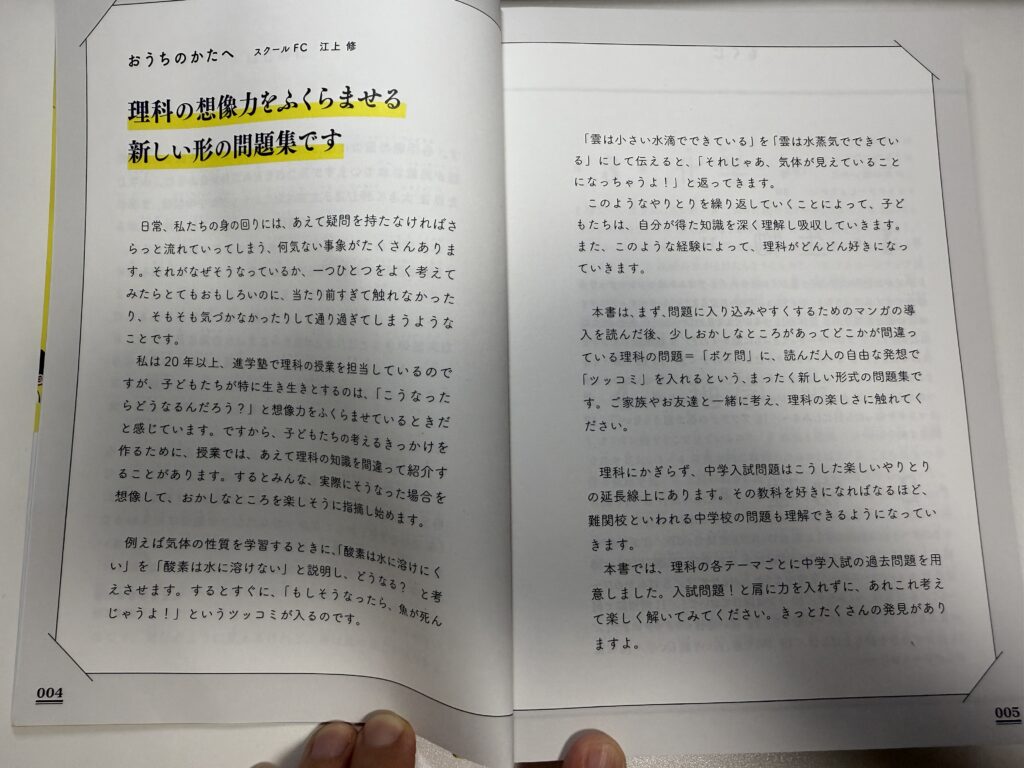 おうちのかたへ　スクールFC　江上 修
理科の想像力をふくらませる
新しい形の問題集です
日常、私たちの身の回りには、あえて疑問を持たなければさ
らっと流れていってしまう、何気ない事象がたくさんありま
す。それがなぜそうなっているか、一つひとつをよく考えて
みたらとてもおもしろいのに、当たり前すぎて触れなかった
り、そもそも気づかなかったりして通り過ぎてしまうような
ことです。
私は20年以上、進学塾で理科の授業を担当しているので
すが、子どもたちが特に生き生きとするのは、「こうなった
らどうなるんだろう？」と想像力をふくらませているときだ
と感じています。ですから、子どもたちの考えるきっかけを
作るために、授業では、あえて理科の知識を間違って紹介す
ることがあります。するとみんな、実際にそうなった場合を
想像して、おかしなところを楽しそうに指摘し始めます。
例えば気体の性質を学習するときに、「酸素は水に溶けにく
い」を「酸素は水に溶けない」と説明し、どうなる？　と考
えさせます。するとすぐに、「もしそうなったら、魚が死ん
じゃうよ！」というツッコミが入るのです。
004
「雲は小さい水滴でできている」を「雲は水蒸気でできてい
る」にして伝えると、「それじゃあ、気体が見えていること
になっちゃうよ！」と返ってきます。
このようなやりとりを繰り返していくことによって、子ど
もたちは、自分が得た知識を深く理解し吸収していきます。
また、このような経験によって、理科がどんどん好きになっ
ていきます。
本書は、まず、問題に入り込みやすくするためのマンガの導
入を読んだ後、少しおかしなところがあってどこかが間違っ
ている理科の問題＝「ボケ問」に、読んだ人の自由な発想で
「ツッコミ」を入れるという、まったく新しい形式の問題集で
す。ご家族やお友達と一緒に考え、理科の楽しさに触れてく
ださい。
理科にかぎらず、中学入試問題はこうした楽しいやりとり
の延長線上にあります。その教科を好きになればなるほど、
難関校といわれる中学校の問題も理解できるようになってい
きます。
本書では、理科の各テーマごとに中学入試の過去問題を用
意しました。入試問題！と肩に力を入れずに、あれこれ考え
て楽しく解いてみてください。きっとたくさんの発見があり
ますよ。
005